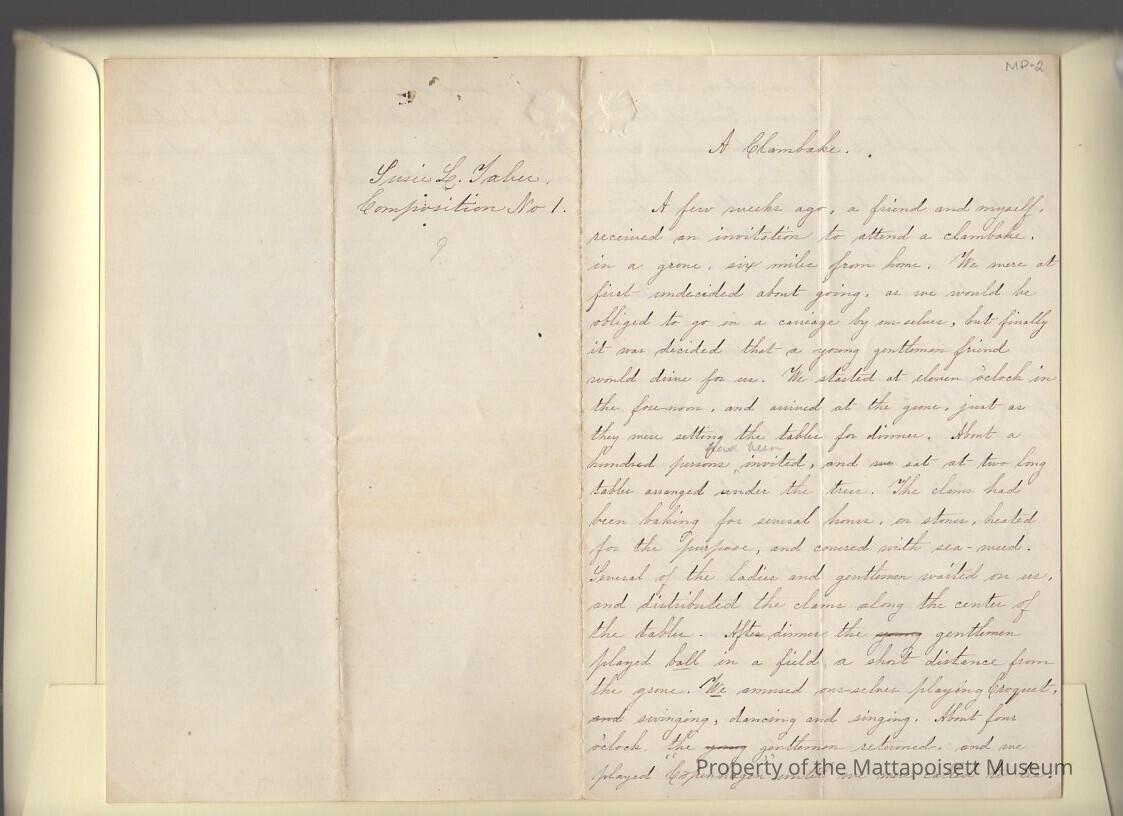 MP-2
Susie L. Taber.
Composition No 1.
A Clambake.
A few weeks ago, a friend and myself,
received an invitation to attend a clambake,
in a grove, six miles from home. We were at
first undecided about going, as we would be
obliged to go in a carriage by our-selves, but finally
it was decided that a young gentleman friend
would drive for us. We started at eleven o'clock in
the fore-noon, and arrived at the grove, just as
they were setting the tables for dinner. About a
had been
hundred persons invited, and we sat at two long
tables arranged under the trees. The clams had
been baking for several hours, on stones, heated
for the purpose, and covered with sea-weed.
Several of the ladies and gentlemen waited on us,
and distributed the clams along the center of
the tables. After dinner the young gentlemen
played ball in a field a short distance from
the grove. We amused our-selves playing Croquet,
and swinging, dancing and singing. About four
o'clock, the young gentlemen returned, and we
played "Copenhagen" until we were called to tea.
Property of the Mattapoisett Museum